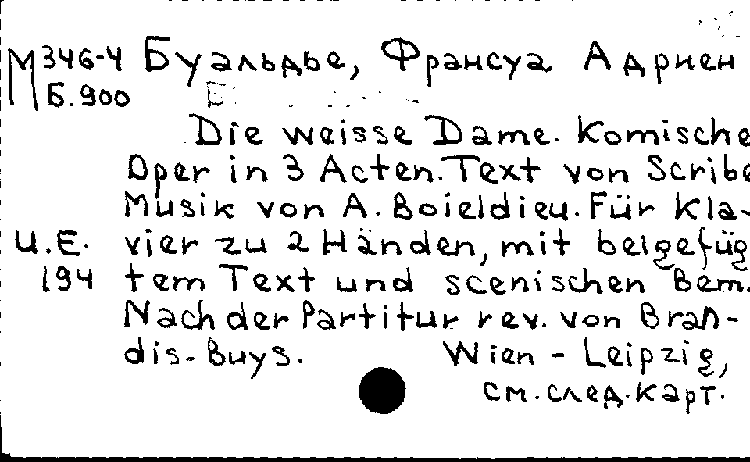 М346-4 Буальдье, Франсуа Адриен
Б.900
Die weisse Dame. Komische
Oper in 3 Acten. Text von Scribe
Musik von A. Boieldieu. Für Kla-
U.E. vier zu 2 Händen, mit beigefüg
194 tem Text und scenischen Bem.
Nach der Partitur rev. von Bran-
dis-Buys. Wien - Leipzig,
см. след. карт.